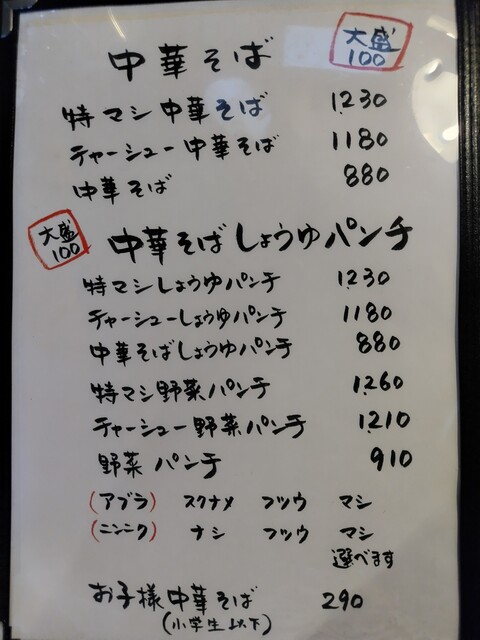 中華そば 大盛100
特マシ中華そば 1230
チャーシュー中華そば 1180
中華そば 880
大盛100 中華そばしょうゆパンチ
特マシしょうゆパンチ 1230
チャーシューしょうゆパンチ 1180
中華そばしょうゆパンチ 880
特マシ野菜パンチ 1260
チャーシュー野菜パンチ 1210
野菜パンチ 910
(アブラ) スクナメ フツウ マシ
(ニンニク) ナシ フツウ マシ
選べます
お子様中華そば 290
(小学生以下)